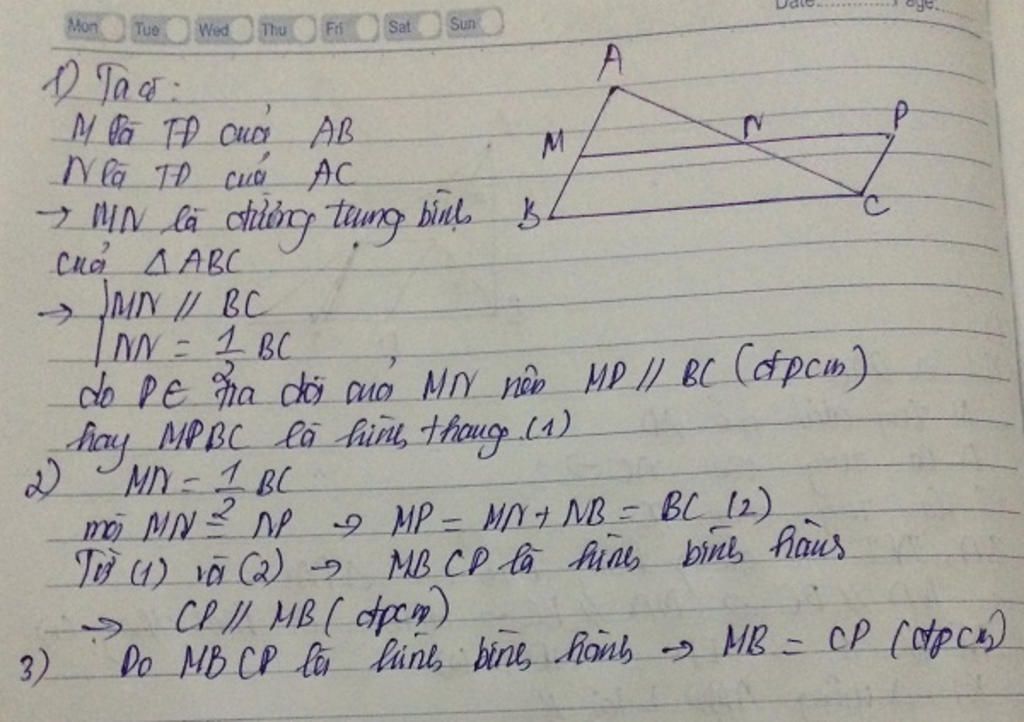 Mon Tue Wed Thu Fri Sat Sun
Date: Page:
1) Ta có:
M là TĐ cuả AB
N là TĐ cuả AC
→ MN là đường trung bình
cuả Δ ABC
→ MN // BC
NN = 1/2 BC
do P∈ tia đối cuả MN nên MP // BC (đpcm)
hay MPBC là hình thang (1)
2) MN = 1/2 BC
mà MN = NP → MP = MN + NB = BC (2)
Từ (1) và (2) → MBCP là hình bình hành
→ CP // MB (đpcm)
3) Do MBCP là hình bình hành → MB = CP (đpcm)
A
M
N
P
B
C